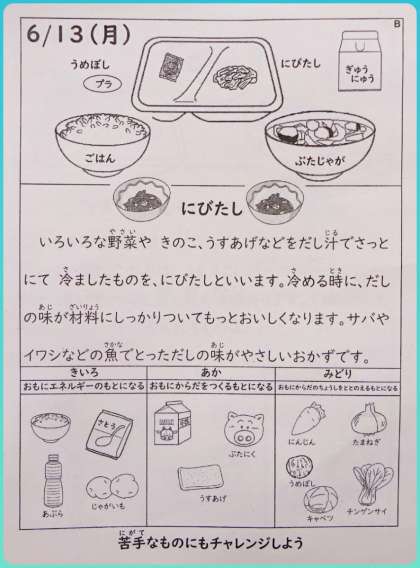 B
6/13(月)
うめぼし
プラ
にびたし
ぎゅう
にゅう
ごはん
ぶたじゃが
にびたし
いろいろな野菜や きのこ、うすあげなどをだし汁でさっと
にて 冷ましたものを、にびたしといいます。冷める時に、だし
の味が材料にしっかりついてもっとおいしくなります。サバや
イワシなどの魚でとっただしの味がやさしいおかずです。
きいろ あか みどり
おもにエネルギーのもとになる おもにからだをつくるもとになる おもにからだのちょうしをととのえるもとになる
さとう
ぶたにく
にんじん たまねぎ
うすあげ
うめぼし
あぶら じゃがいも
キャベツ チンゲンサイ
苦手なものにもチャレンジしよう